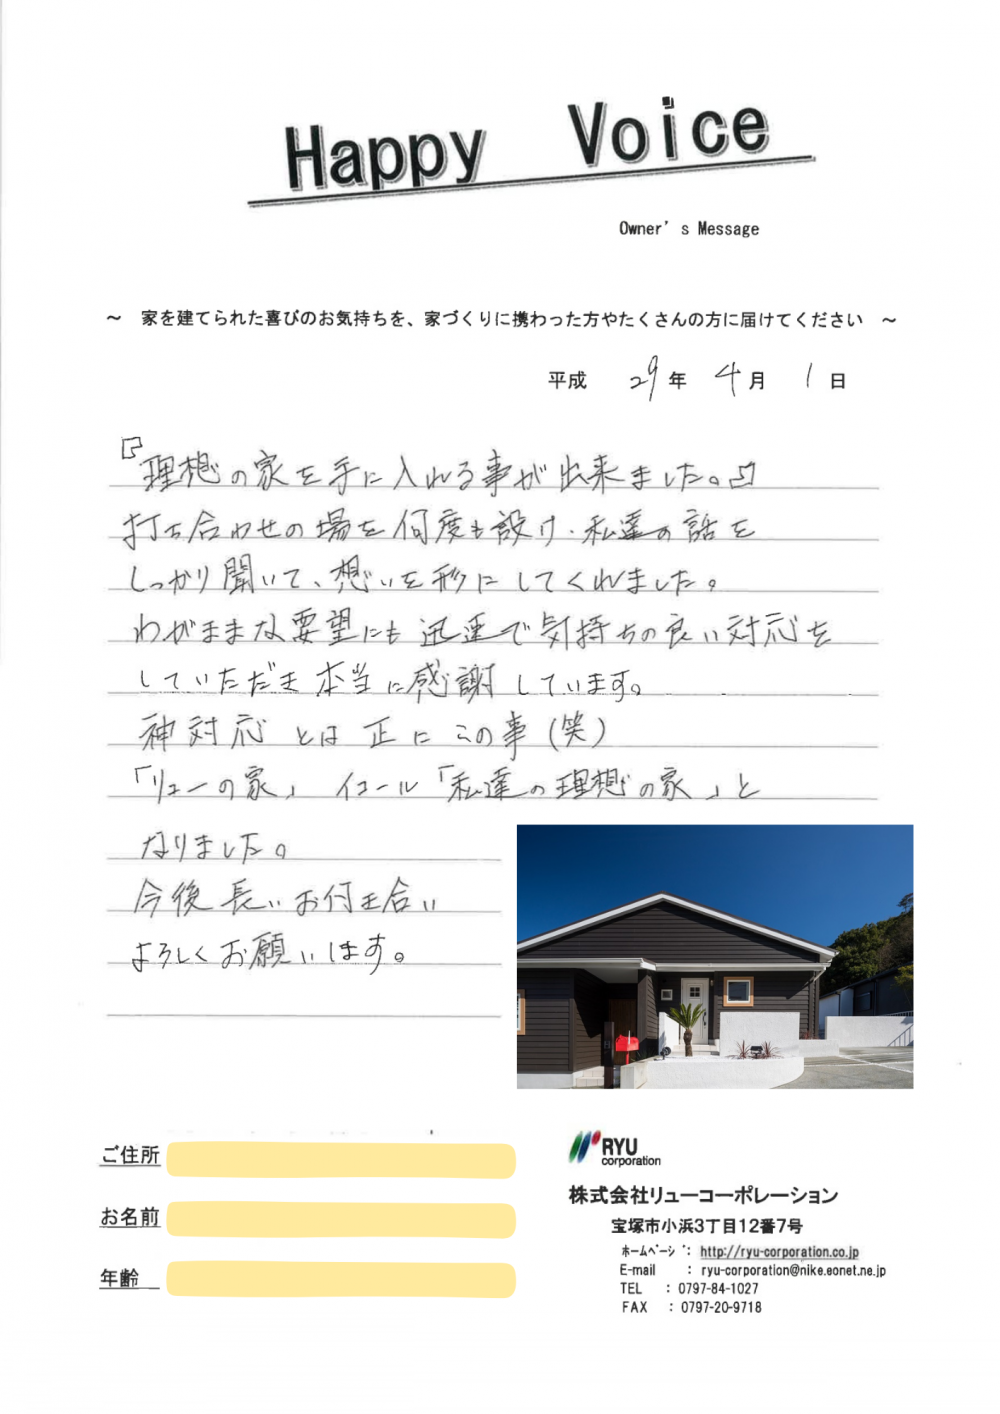 Happy Voice
Owner's Message
～ 家を建てられた喜びのお気持ちを、家づくりに携わった方やたくさんの方に届けてください ～
平成 29年 4月 1日
『理想の家を手に入れる事が出来ました。』
打ち合わせの場を何度も設け、私達の話を
しっかり聞いて、想いを形にしてくれました。
わがままな要望にも迅速で気持ちの良い対応を
していただき本当に感謝しています。
神対応とは正にこの事(笑)
「リューの家」イコール「私達の理想の家」と
なりました。
今後長いお付き合い
よろしくお願いします。
ご住所
お名前
年齢
RYU
corporation
株式会社リューコーポレーション
宝塚市小浜3丁目12番7号
ホームページ: http://ryu-corporation.co.jp
E-mail : ryu-corporation@nike.eonet.ne.jp
TEL : 0797-84-1027
FAX : 0797-20-9718